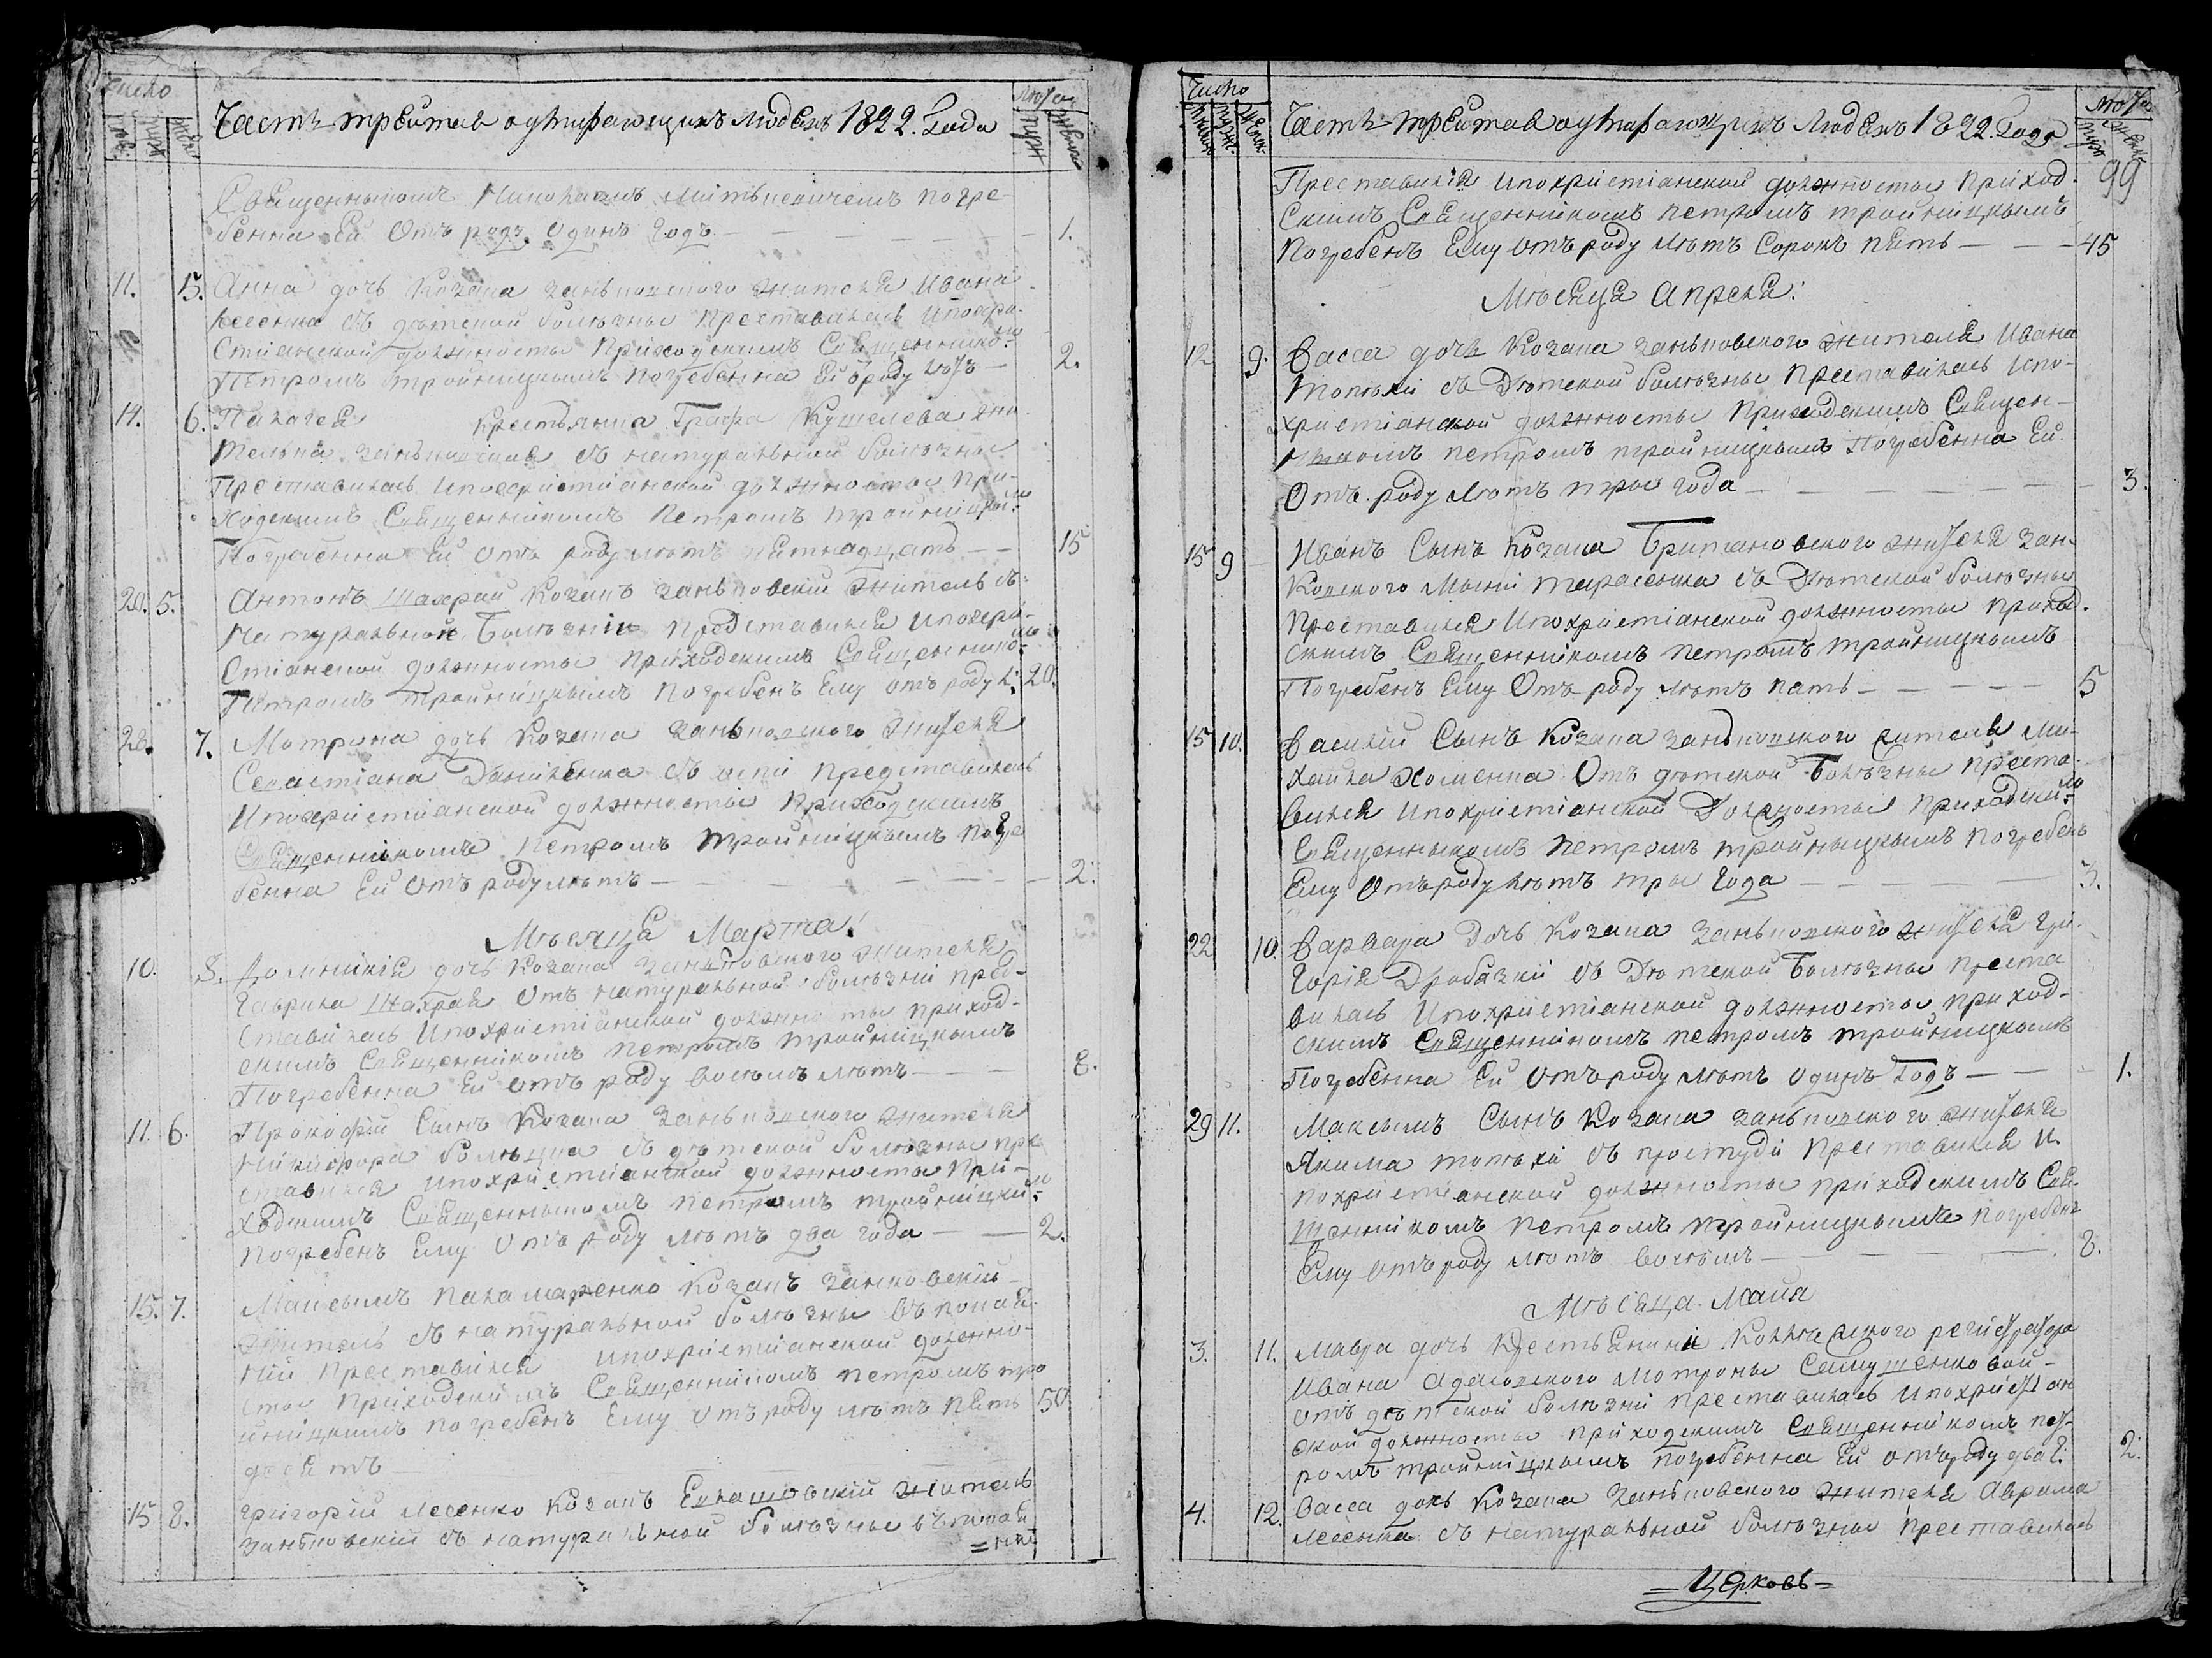 Число
Часть третиа о умирающихъ людехъ 1822. Года
Лѣта
Священникомъ Николаемъ погре-
бенна Ей Отъ роду Одинъ Годъ 1.
11. 5. Анна дочь Козака заньковского жителя Ивана
Лесенка съ дѣтской болѣзны преставилась и по хри-
стианской должносты приходскимъ Священнико:мъ
Петромъ тройницкымъ погребенна Ей 2.
14. 6. Палагея крестьянка Графа Кушелева жи-
телька заньковская съ натуральной болѣзны
Преставилась и по христианской должносты при-
ходскимъ Священникомъ Петромъ тройницкы:мъ
Погребенна Ей отъ роду лѣтъ пятнадцать 15
20. 5. Антонъ Шахрай Козакъ заньковскій житель съ
натуральной Болѣзніи представился и по хри-
стианской должносты приходскимъ Священнико:мъ
Петромъ тройницкымъ погребенъ Ему отъ роду л: 20.
28. 7. Мотрона дочь Козака заньковского жителя
Севастіана Данилѣнка съ представилась
И по христианской должносты приходскимъ
Священникомъ Петромъ тройницкымъ погре
бенна Ей Отъ роду лѣтъ 2:
Мѣсяца Марта!
10. 8. Домникія дочь Козака заньковского жителя
Гаврила Шахрая Отъ натуральной болѣзні пред-
ставилась И по христіанской должносты приход-
скимъ Священникомъ Петромъ тройницкымъ
Погребенна Ей отъ роду восемъ лѣтъ 8.
11. 6. Прокофій Сынъ Козака заньковского жителя
Никифора съ дѣтской болѣзны пре
ставился и по христианской должносты при-
ходскимъ Священныкомъ Петромъ тройницкы:мъ
погребенъ Ему Отъ роду лѣтъ два года 2.
15. 7. Максымъ Паламаренко Козакъ занковскій
житель съ натуральной болѣзны въ покая-
ніи преставился и по христианской должно-
сты приходскимъ Священникомъ Петромъ тро
йницкимъ погребенъ Ему отъ роду лѣтъ пять 50
десятъ
15 8. Григорій Лесенко Козакъ житель
заньковскій съ натуральной болѣзны въ покая
=ніі
Число
Часть третиа о умирающихъ людехъ 1822. Года
Лѣта
99
Преставился и по христіанской должносты приход-
скимъ Священникомъ Петромъ тройницкымъ
Погребенъ Ему отъ роду лѣтъ Сорокъ пять 45
Мѣсяца Апреля:
12 9. Васса дочь Козака заньковского жителя Ивана
съ Дѣтской болѣзны преставилась и по-
христіанской должносты приходскимъ Священ-
никомъ Петромъ тройницкымъ Погребенна Ей
Отъ роду лѣтъ тры года 3.
15 9 Иванъ Сынъ Козака Британовского жителя зан-
ковского Тарасенка съ Дѣтской болѣзны
преставился И по христіанской должносты приход-
скимъ Священникомъ Петромъ тройницкымъ
Погребенъ Ему Отъ роду лѣтъ пять 5
15 10. Василій Сынъ Козака заньковского жителя Ми-
хаила Хоменка Отъ дѣтской Болѣзны преста-
вился и по христіанской Должносты приходски:мъ
Священныкомъ Петромъ тройныцкымъ погребенъ
Ему Отъ роду лѣтъ тры Года 3.
22 10. Варвара Дочь Козака заньковского жителя Гри-
горія Дробязкі съ Дѣтской Болѣзны преста
вилась И по христіанской должносты приход-
скимъ Священникомъ Петромъ тройницкымъ
Погребенна Ей Отъ роду лѣтъ Одинъ Годъ 1.
29 11. Максымъ Сынъ Козака заньковского жителя
Якима съ простуды преставился и
по христіанской должносты приходскимъ Свя-
щенникомъ Петромъ тройницкымъ погребенъ
Ему отъ роду лѣтъ восемъ 8.
Мѣсяца Маиа
3. 11. Мавра дочь Крестьянини Коллѣжского регистратора
Ивана Мотроны
отъ дѣтской болѣзні преставилась и по христіан
ской должносты приходскимъ Священникомъ Пет-
ромъ тройницкымъ погребенна Ей отъ роду два г: 2:
4. 12. Васса дочь Козака Заньковского жителя Аврама
Лесенка съ натуральной болѣзны преставилась
=Церковь=